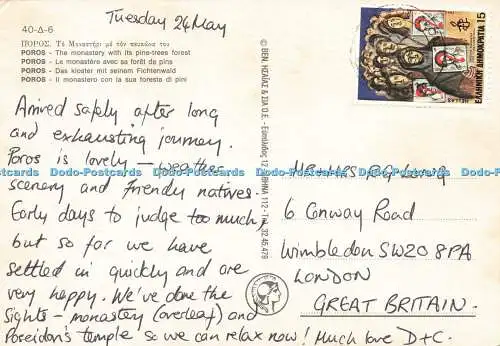 Tuesday 24 May
40-Δ-6
ΠΟΡΟΣ. Τὸ Μοναστήρι μὲ τὸν πευκώνα του
POROS - The monastery with its pine-trees forest
POROS - Le monastère avec sa forêt de pins
POROS - Das kloster mit seinem Fichtenwald
POROS - Il monastero con la sua foresta di pini
Arrived safely after long
and exhausting journey.
Poros is lovely – weather
scenery and friendly natives.
Early days to judge too much,
but so far we have
settled in quickly and are
very happy. We've done the
sights – monastery (overleaf) and
Poseidon's temple so we can relax now! Much love D+C.
6 Conway Road
Wimbledon SW20 8PA
LONDON
GREAT BRITAIN.
ΕΛΛΗΝΙΚΗ ΔΗΜΟΚΡΑΤΙΑ 15
HELLAS
Dodo-Postcards Dodo-Postcards Dodo-Postcards Dodo-Postcards